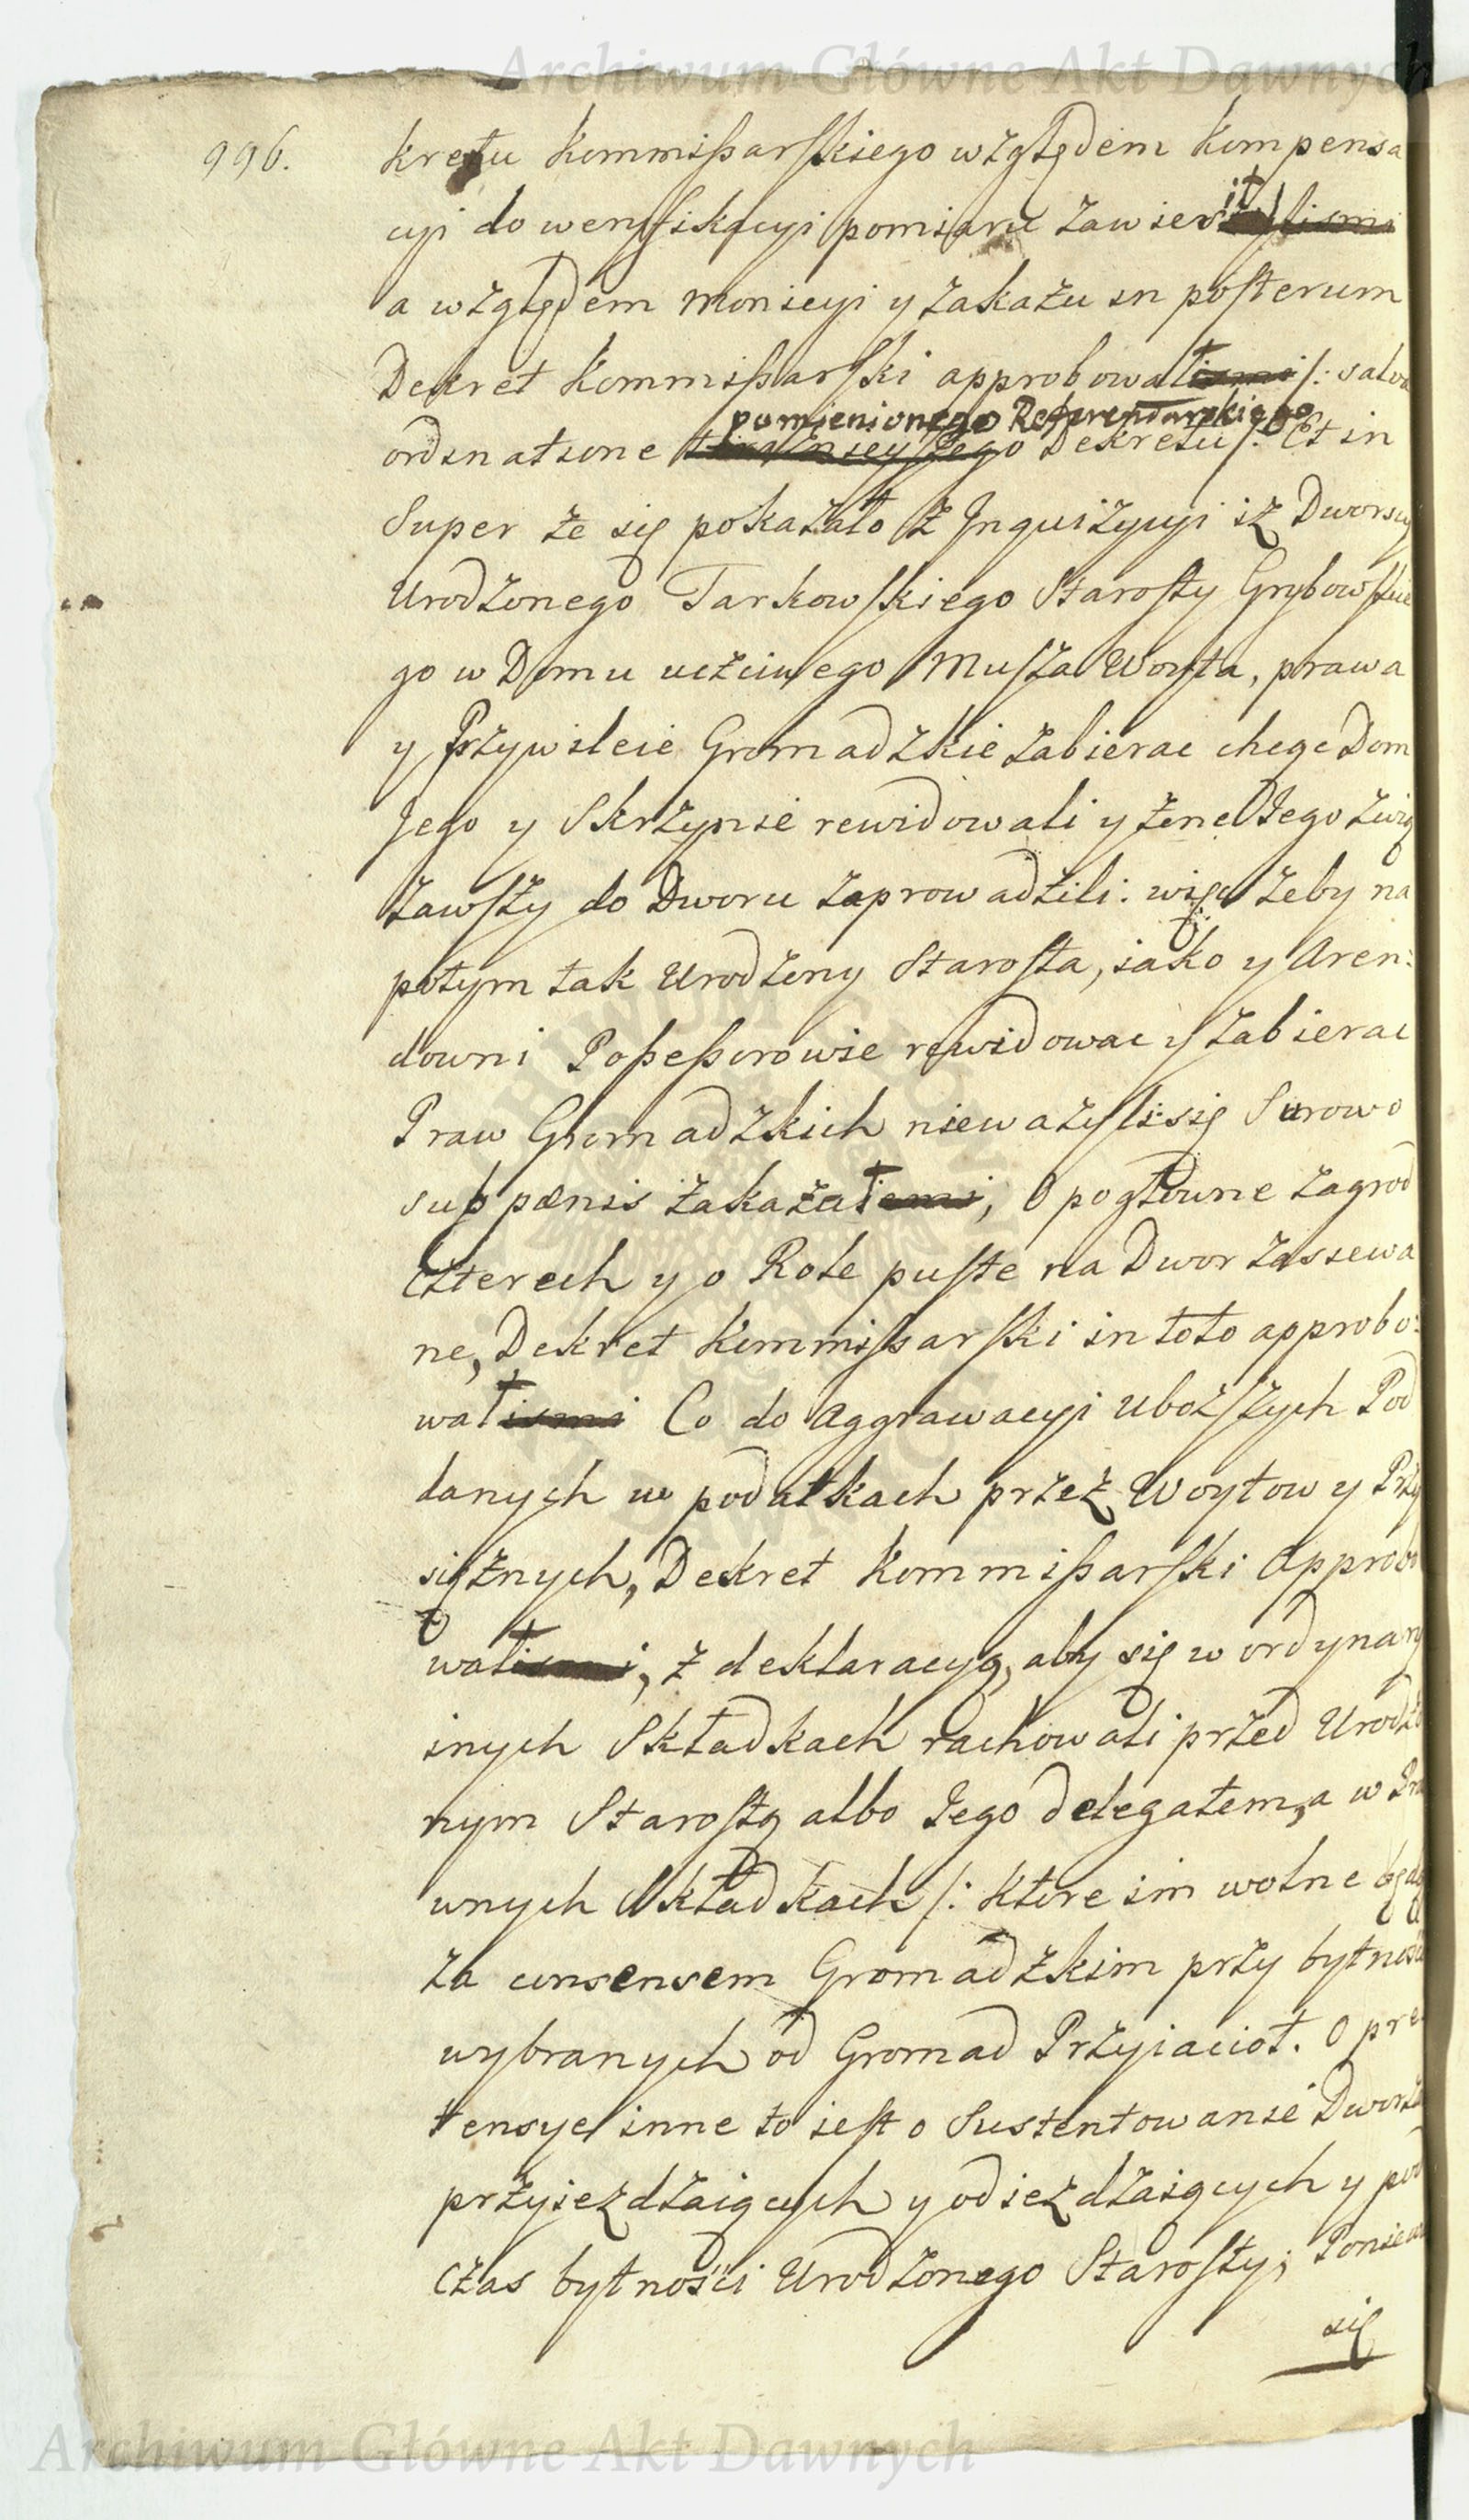 Archiwum Główne Akt Dawnych
996.
kretu Kommissarskiego względem Kompensa
cyi do weryfikacyi pomiaru zawiesił
a względem Monicyi y zakazu in posterum
Dekret Kommissarski approbował /: salva
pomienionego Referendarskiego
ordinatione Dekretu /: Et in
Super że się pokazało z Inquizycyi iż Dworscy
Urodzonego Tarkowskiego Starosty Grybowskie
go w Domu uczciwego Musza Woyta, prawa
y Przywileie Gromadzkie zabierac chcąc Dom
Jego y Skrzynie rewidowali y żenę Jego zwią
zawszy do Dworu zaprowadzili: więc żeby na
potym tak Urodzony Starosta, iako y Aren:
downi Possessorowie rewidowac y zabierac
Praw Gromadzkich nieważyli się Surowo
sub pœnis zakazał, O pogłowne zagrod
czterech y o Role puste na Dwor zasiewa
ne, Dekret Kommissarski in toto approbo:
wał Co do Aggrawacyi Uboższych Pod
danych w podatkach przez Woytow y Przy
siężnych, Dekret Kommissarski Approbo
wał, z deklaracyą, aby się w ordynary
inych Składkach rachowali przed Urodzo
nym Starostą albo Jego delegatem, a w Pra
wnych Składkach /: ktore im wolne będą
za consensem Gromadzkim przy bytnosci
wybranych od Gromad Przyiacioł. O pre
tensye inne to iest o Sustentowanie Dworza
przyiezdzaiących y odiezdzaiących y pod
czas bytności Urodzonego Starosty; Poniewa
się
Archiwum Główne Akt Dawnych